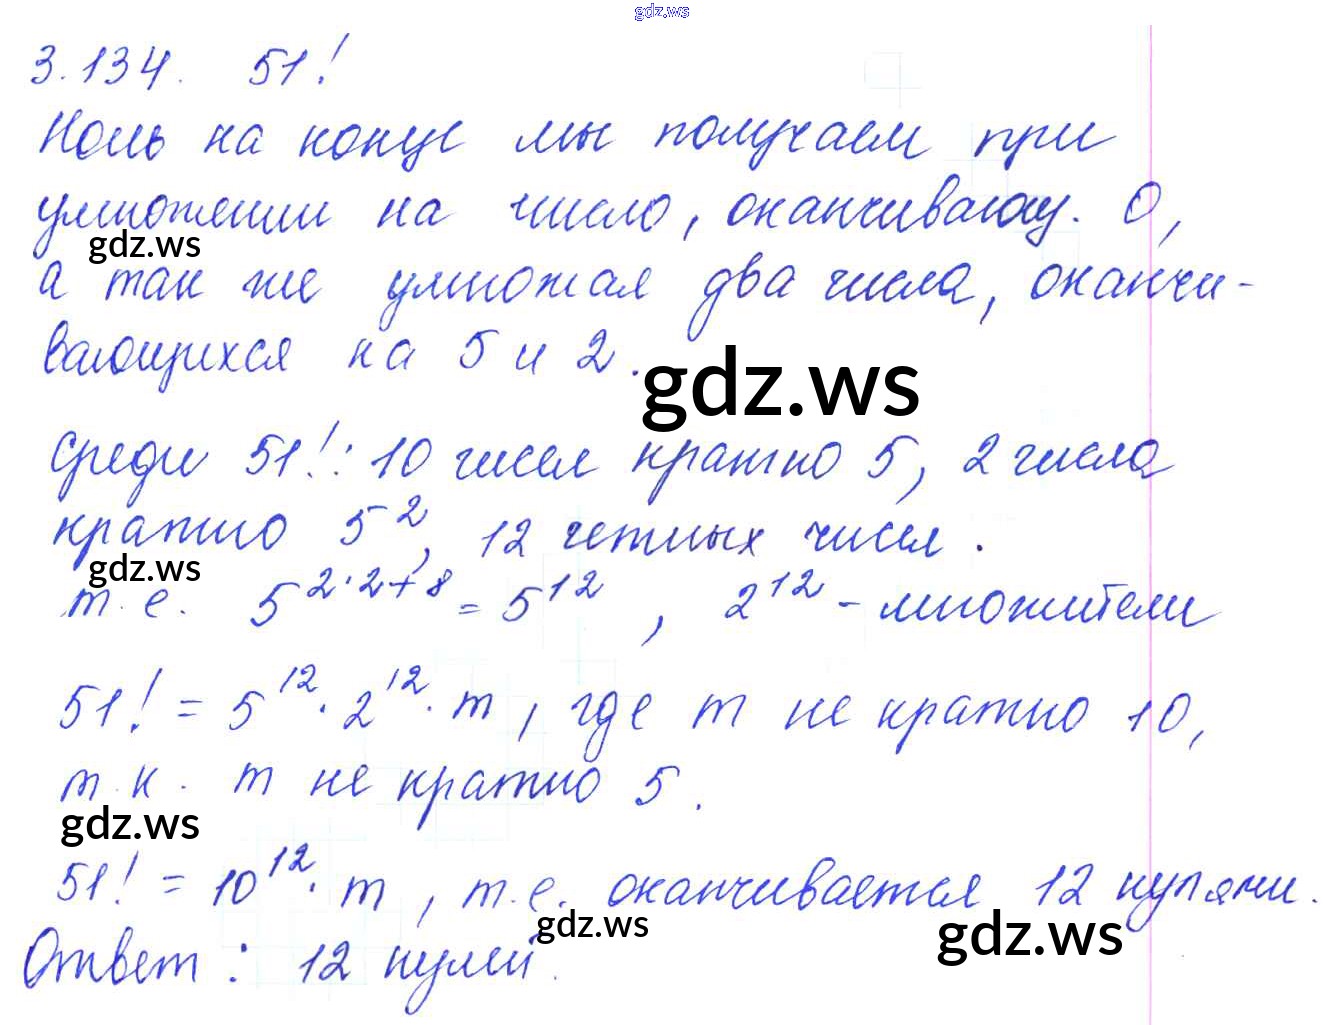 gdz.ws
3.134. 51!
Ноль на конце мы получаем при
умножении на число, оканчивающ. 0,
gdz.ws
а так же умножая два числа, оканчи-
вающихся на 5 и 2.
gdz.ws
Среди 51!: 10 чисел кратно 5, 2 числа
кратно 5², 12 четных чисел.
gdz.ws
т.е. 5²·²⁺⁸ = 5¹², 2¹² - множители
51! = 5¹² · 2¹² · m, где m не кратно 10,
т.к. m не кратно 5.
gdz.ws
51! = 10¹² · m, т.е. оканчивается 12 нулями.
gdz.ws
gdz.ws
Ответ: 12 нулей.